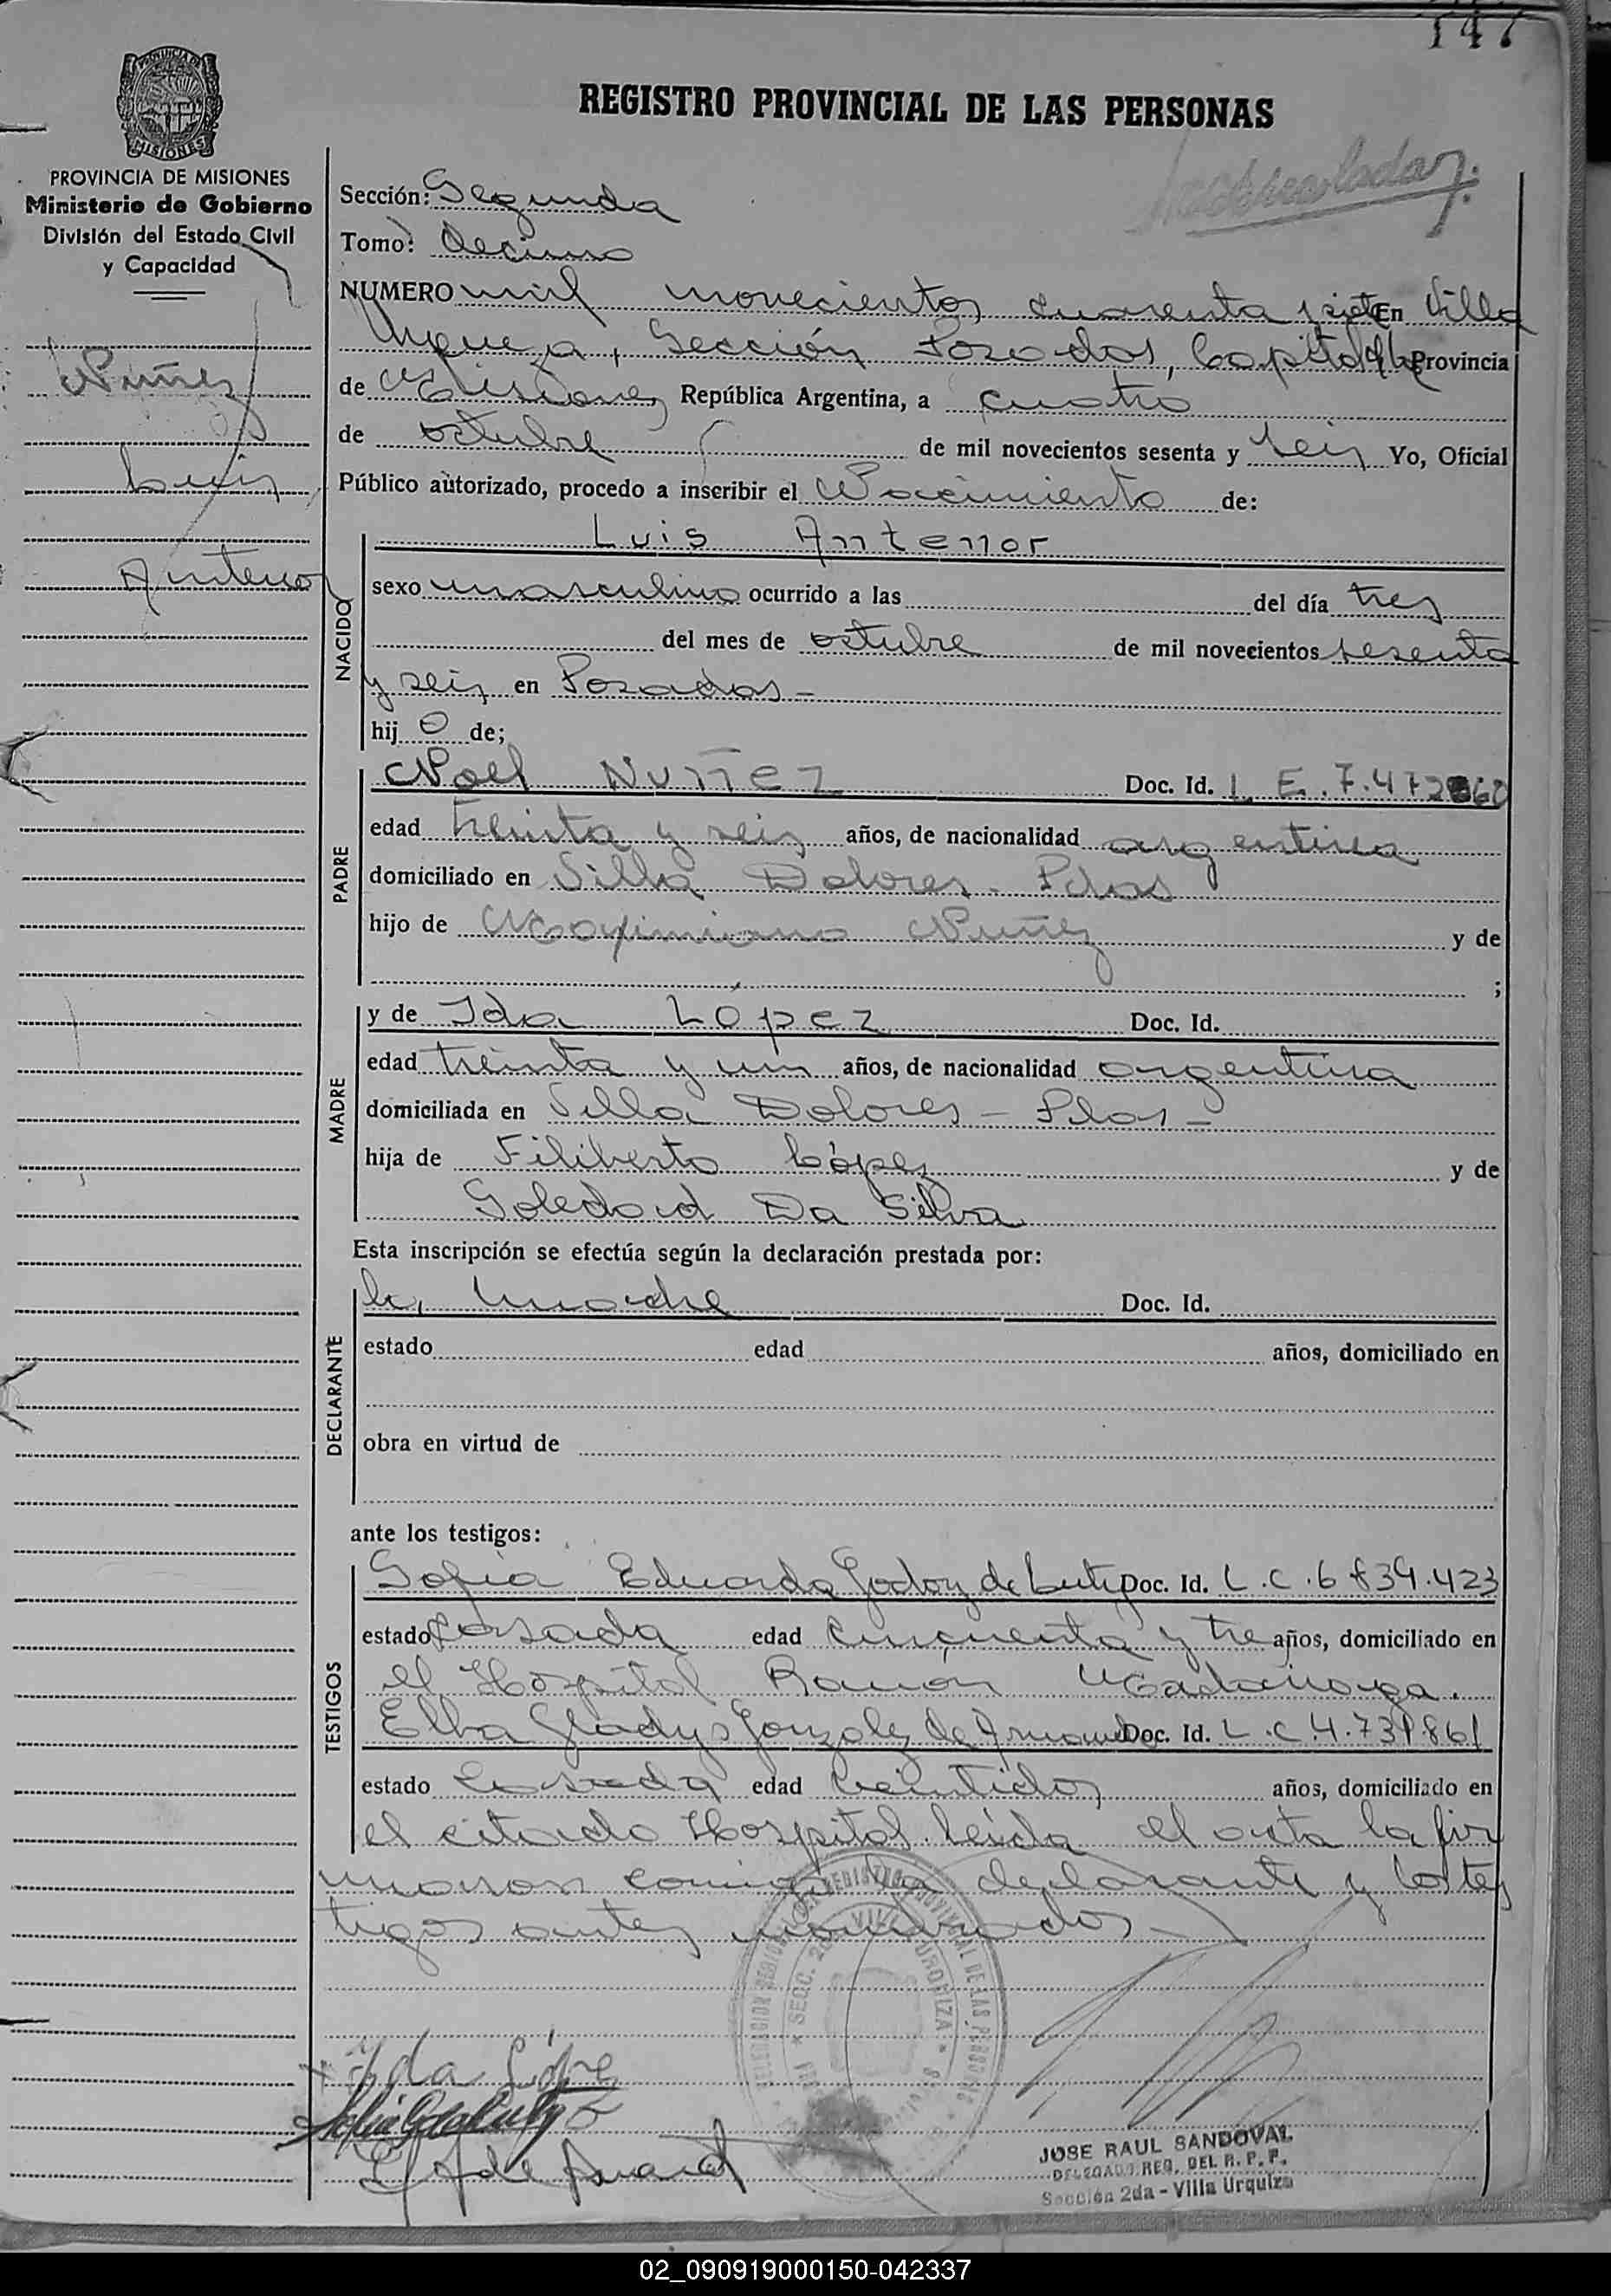 147
REGISTRO PROVINCIAL DE LAS PERSONAS
PROVINCIA DE MISIONES
Ministerio de Gobierno
División del Estado Civil
y Capacidad
Nuñez
Luis
Antenor
Sección: Segunda
Tomo: Decimo
NUMERO mil novecientos cuarenta y siete En Villa
Urquiza, Sección Posadas, Capital de la Provincia
de Misiones República Argentina, a cuatro
de octubre de mil novecientos sesenta y seis Yo, Oficial
Público autorizado, procedo a inscribir el Nacimiento de:
NACIDO
Luis Antenor
sexo masculino ocurrido a las del día tres
del mes de octubre de mil novecientos sesenta
y seis en Posadas -
hij o de;
PADRE
Noel NUÑEZ Doc. Id. L. E. 7.472
edad treinta y seis años, de nacionalidad argentina
domiciliado en Villa Dolores - Pdas
hijo de Maximiano Nuñez y de
;
MADRE
y de Ida López Doc. Id.
edad treinta y un años, de nacionalidad argentina
domiciliada en Villa Dolores - Pdas -
hija de Filiberto López y de
Soledad Da Silva
Esta inscripción se efectúa según la declaración prestada por:
DECLARANTE
la madre Doc. Id.
estado edad años, domiciliado en
obra en virtud de
ante los testigos:
TESTIGOS
Sofia Eduarda Godoy de Doc. Id. L.C. 6.839.423
estado casada edad cincuenta y tre años, domiciliado en
el Hospital Ramón Madariaga.
Elba Gladys Gonzalez de Doc. Id. L.C. 4.739861
estado casada edad veintidos años, domiciliado en
el citado Hospital. Leída el acta la fir
maron conmigo la declarante y los tes
tigos antes nombrados.
DELEGACION REGISTRO PROVINCIAL DE LAS PERSONAS
SECC. 2da VILLA URQUIZA
Ida López
JOSE RAUL SANDOVAL
DELEGADO REG. DEL R. P. P.
Sección 2da - Villa Urquiza
02_090919000150-042337